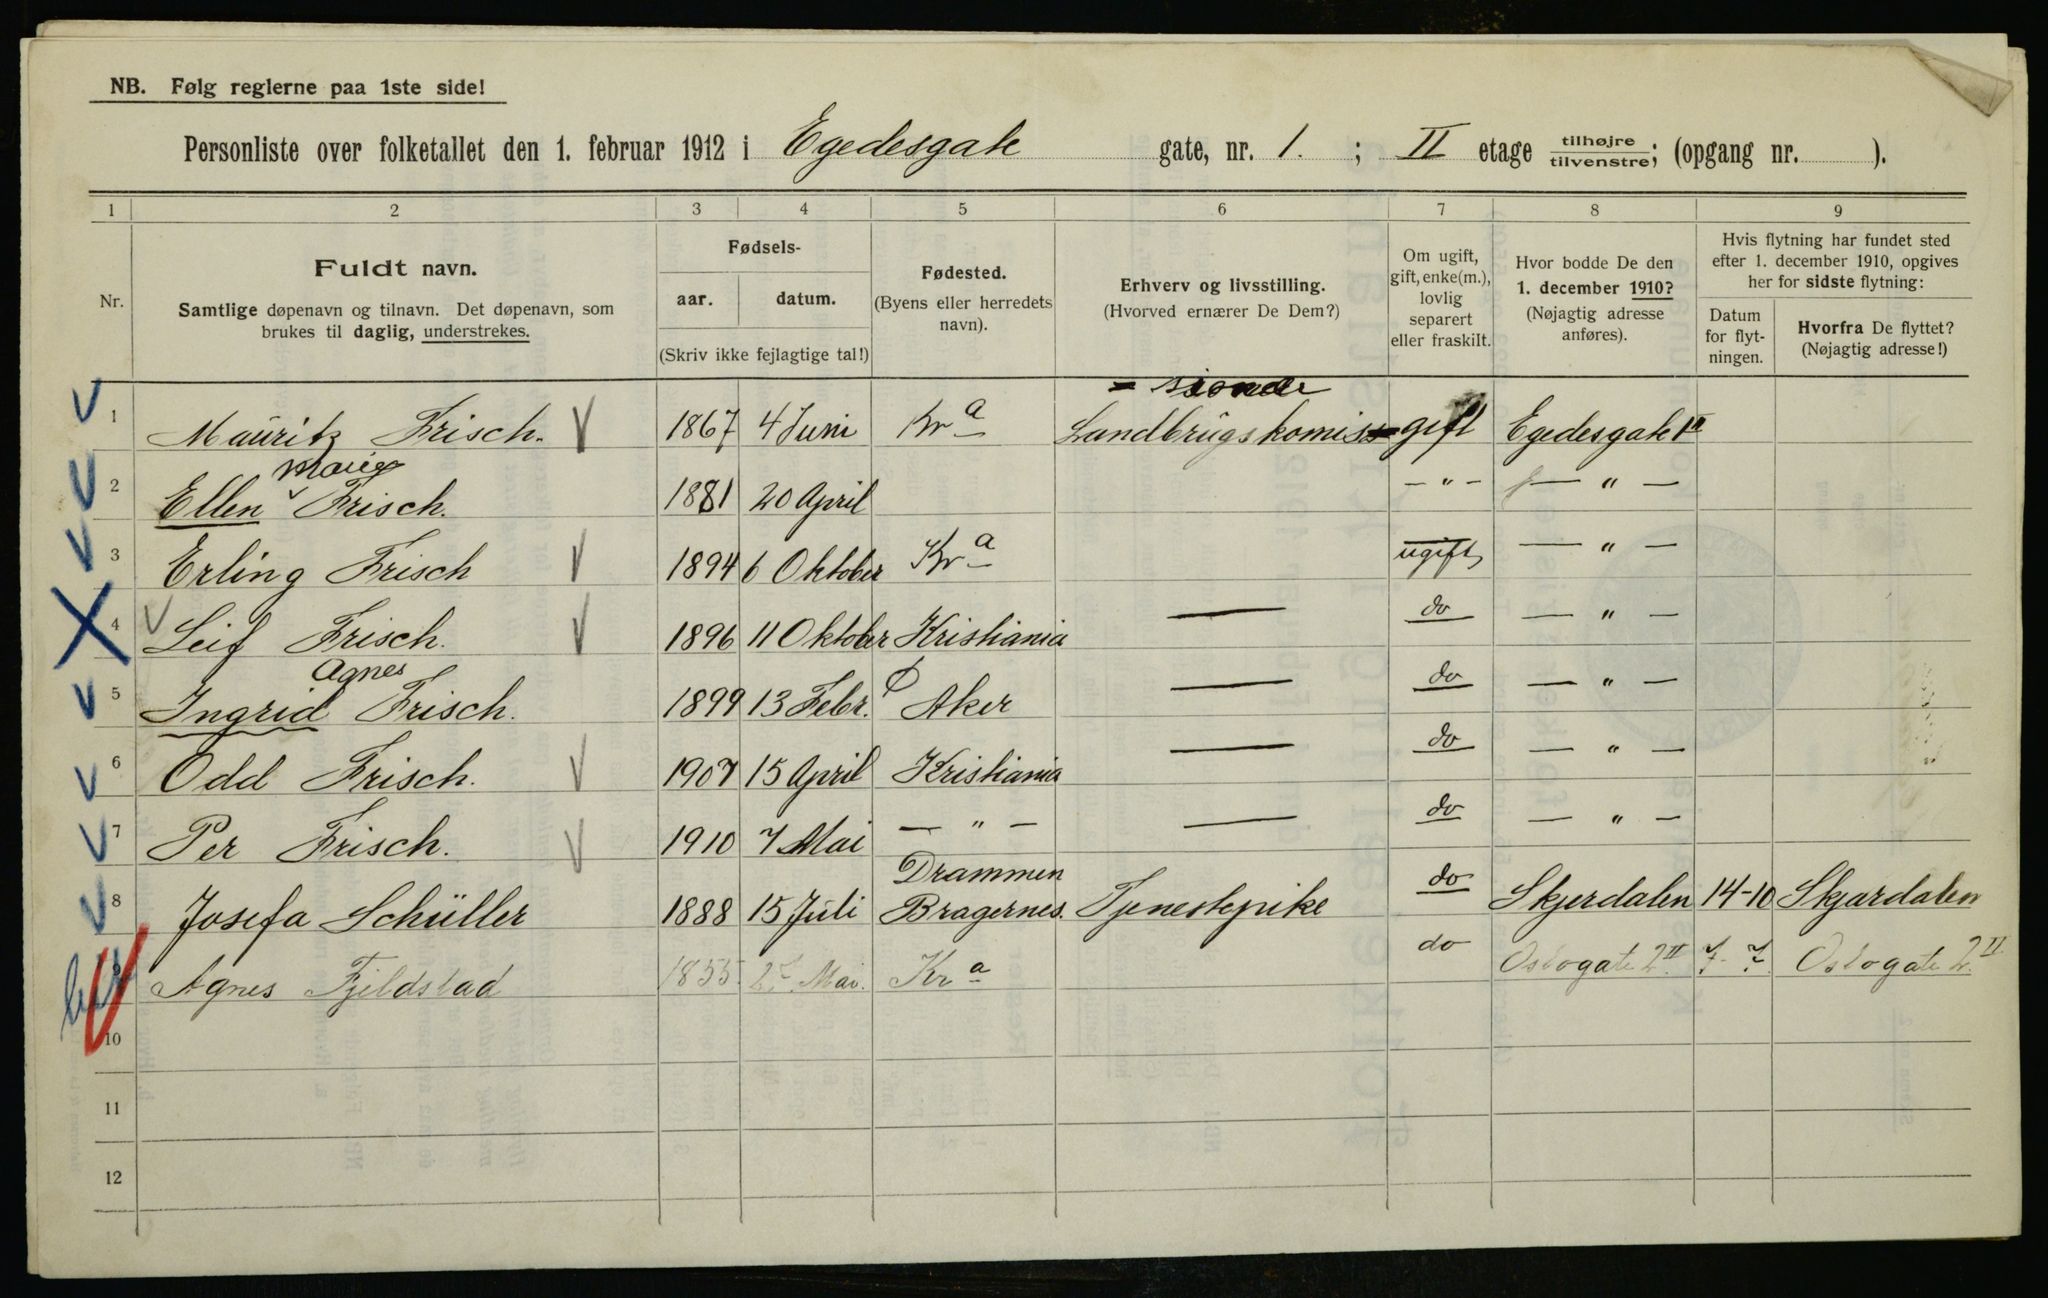 NB. Følg reglerne paa 1ste side!
Personliste over folketallet den 1. februar 1912 i Egedesgate gate, nr. 1. ; II etage tilhøjre/tilvenstre; (opgang nr. ).
1 2 3 4 5 6 7 8 9
Nr.
Fuldt navn.
Samtlige døpenavn og tilnavn. Det døpenavn, som
brukes til daglig, understrekes.
Fødsels-
aar. datum.
(Skriv ikke fejlagtige tal!)
Fødested.
(Byens eller herredets
navn).
Erhverv og livsstilling.
(Hvorved ernærer De Dem?)
Om ugift,
gift, enke(m.),
lovlig
separert
eller fraskilt.
Hvor bodde De den
1. december 1910?
(Nøjagtig adresse
anføres).
Hvis flytning har fundet sted
efter 1. december 1910, opgives
her for sidste flytning:
Datum
for flyt-
ningen.
Hvorfra De flyttet?
(Nøjagtig adresse!)
- sionær
1 Mauritz Frisch. 1867 4 Juni Kr a Landbrugskomiss gift Egedesgate 1 II
Marie
2 Ellen Frisch. 1881 20 April - " - - " -
3 Erling Frisch 1894 6 Oktober Kr a ugift - " -
4 Leif Frisch. 1896 11 Oktober Kristiania — do - " -
Agnes
5 Ingrid Frisch. 1899 13 Febr. Aker — do - " -
6 Odd Frisch. 1907 15 April Kristiania — do - " -
7 Per Frisch. 1910 7 Mai - " - — do - " -
Drammen
8 Josefa Schüller 1888 15 Juli Bragernes. Tjenestepike do Skjerdalen 14-10 Skjærdalen
9 Agnes Fjeldstad 1855. Mai. Kr a do Oslogate 2 II 7-7. Oslogate 2. II
10
11
12